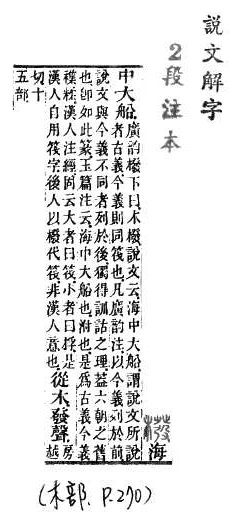 說文解字
2段注本
橃 海
中大船 廣韵橃下曰木橃說文云海中大船謂說文所說
者古義今義則同筏也凡廣韵注以今義列於前
說文與今義不同者列於後獨得訓詁之理葢六朝之舊
也卽如此篆玉篇注云海中大船也泭也是爲古義今義
襍糅漢人注經固云大者曰筏小者曰桴是
漢人自用筏字後人以橃代筏非漢人意也 從木發聲 房越
切十
五部
(木部. P.270)